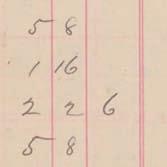 5 8
1 16
2 2 6
5 8